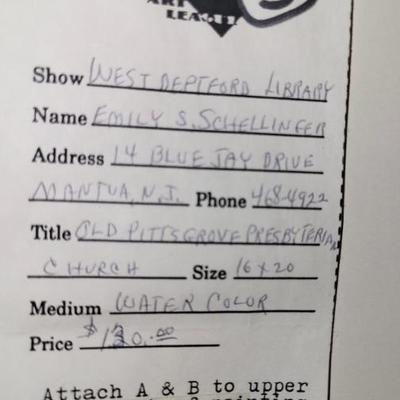 ART
LEAGUE
Show WEST DEPTFORD LIBRARY
Name EMILY S. SCHELLINGER
Address 14 BLUE JAY DRIVE
MANTUA, N.J. Phone 468-4922
Title OLD PITTSGROVE PRESBYTERIAN
CHURCH Size 16 x 20
Medium WATER COLOR
Price $130.00
Attach A & B to upper